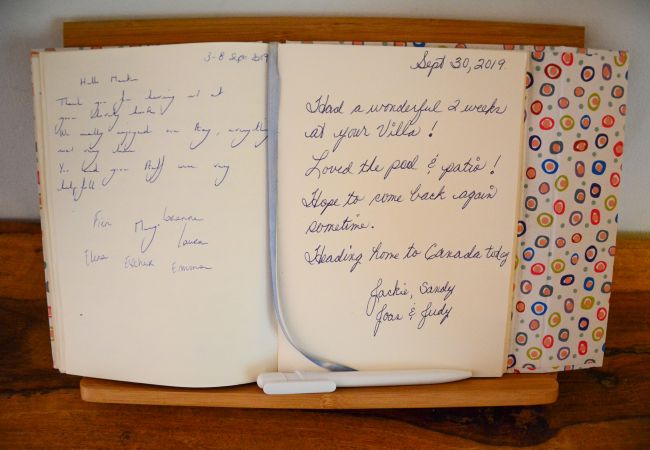 3-8 Sept 2019
Hello
Thank you for having us at
your lovely
We really enjoyed our stay, everything
was very clean
You and your staff were very
helpfull
Fien Leanne
Laura
Elisa Emma
Sept 30, 2019.
Had a wonderful 2 weeks
at your Villa!
Loved the pool & patio!
Hope to come back again
sometime.
Heading home to Canada today
Jackie, Sandy
Joan & Judy